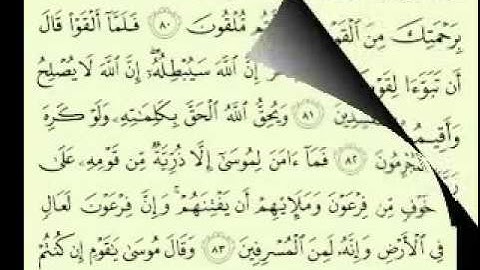 بِرَحْمَتِكَ مِنَ مُّلْقُونَ ٨٠ فَلَمَّآ أَلْقَوْا۟ قَالَ
أَن تَبَوَّءَا إِنَّ ٱللَّهَ سَيُبْطِلُهُۥٓ إِنَّ ٱللَّهَ لَا يُصْلِحُ
٨١ وَيُحِقُّ ٱللَّهُ ٱلْحَقَّ بِكَلِمَٰتِهِۦ وَلَوْ كَرِهَ
ٱلْمُجْرِمُونَ ٨٢ فَمَآ ءَامَنَ لِمُوسَىٰٓ إِلَّا ذُرِّيَّةٌ مِّن قَوْمِهِۦ عَلَىٰ
خَوْفٍ مِّن فِرْعَوْنَ وَمَلَإِي۟هِمْ أَن يَفْتِنَهُمْ ۚ وَإِنَّ فِرْعَوْنَ لَعَالٍ
فِى ٱلْأَرْضِ وَإِنَّهُۥ لَمِنَ ٱلْمُسْرِفِينَ ٨٣ وَقَالَ مُوسَىٰ يَٰقَوْمِ إِن كُنتُمْ